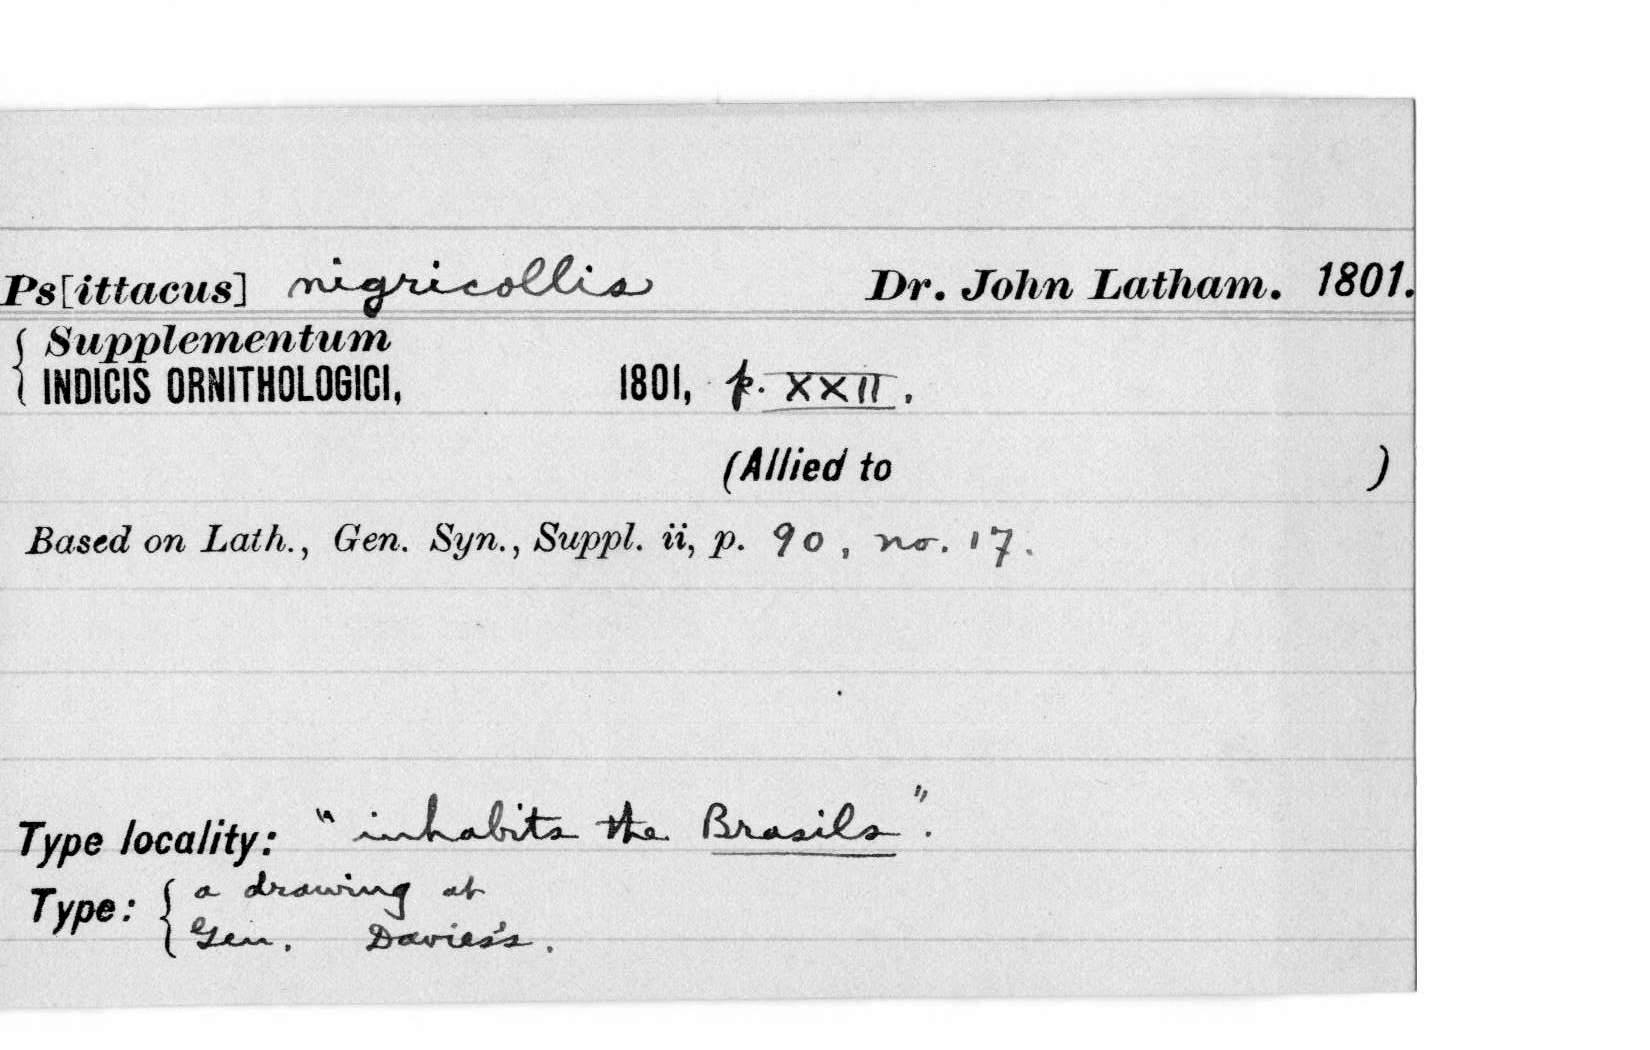 Ps[ittacus] nigricollis Dr. John Latham. 1801.
Supplementum
INDICIS ORNITHOLOGICI, 1801, p. XXII.
(Allied to )
Based on Lath., Gen. Syn., Suppl. ii, p. 90, no. 17.
Type locality: "inhabits the Brasils".
Type: { a drawing at
Gen. Davies's.